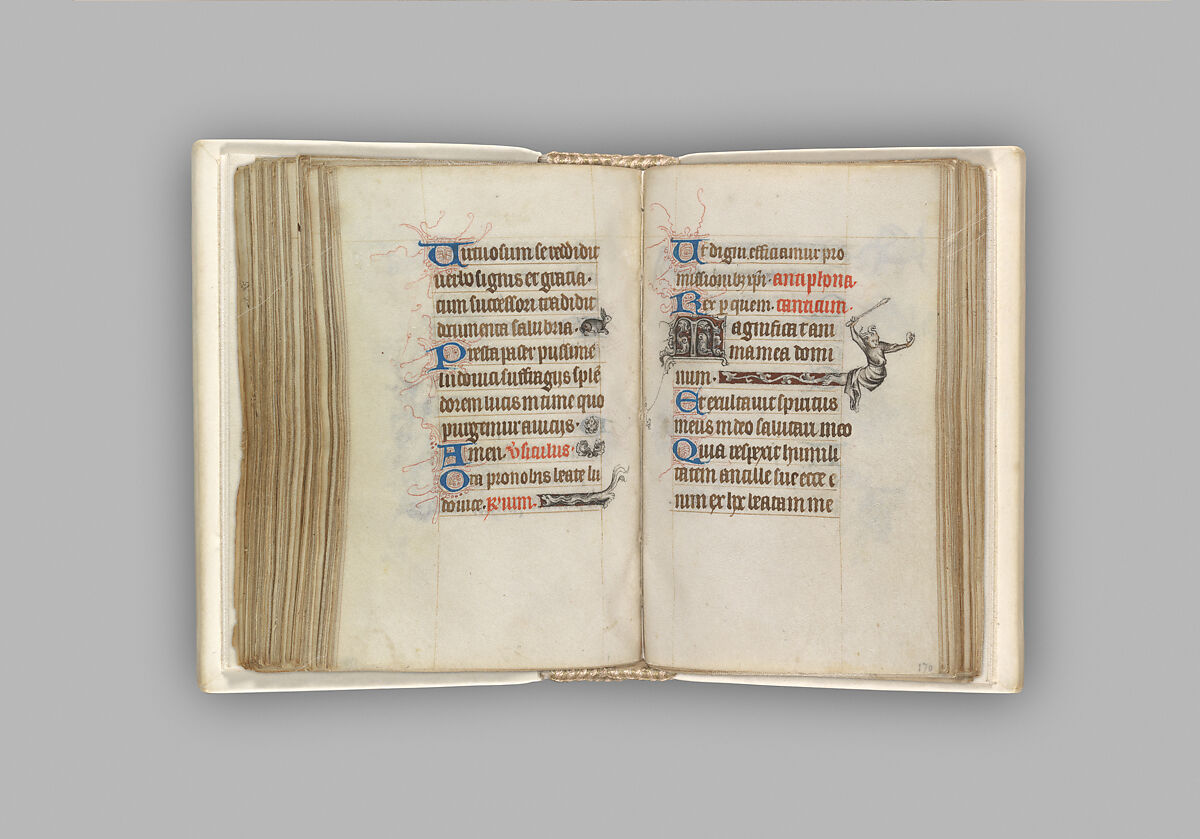 Virtuosum se reddidit
verbo signis et gratia.
cum successori tradidit
documenta salubria.
Presta pater piissime
ludovici suffragiis splē
dorem lucis intime quo
purgemur a viciis.
Amen. v̾siculus.
Ora pro nobis beate lu
dovice. R̾ium.
Ut digni efficiamur pro
missionibꝫ xp̄i. antiphona.
Rex ꝑ quem. canticum.
Magnificat ani
ma mea domi
num.
Et exultavit spiritus
meus in deo salutari meo
Quia respexit humili
tatem ancille sue ecce e
nim ex hoc beatam me
170